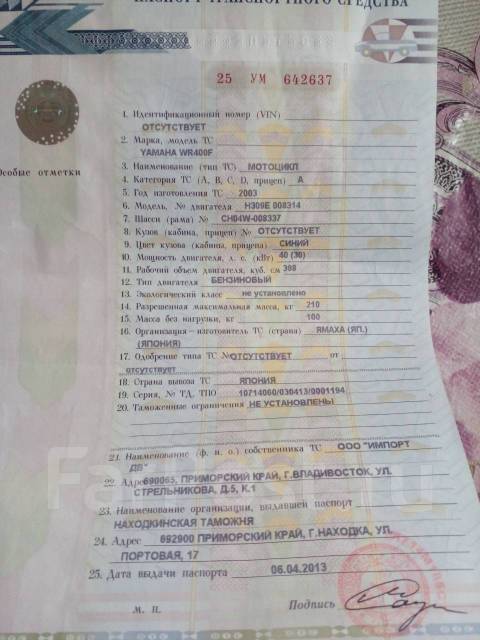 ПАСПОРТ ТРАНСПОРТНОГО СРЕДСТВА
25 УМ 642637
Особые отметки
1. Идентификационный номер (VIN)
ОТСУТСТВУЕТ
2. Марка, модель ТС
YAMAHA WR400F
3. Наименование (тип ТС) МОТОЦИКЛ
4. Категория ТС (А, В, С, D, прицеп) А
5. Год изготовления ТС 2003
6. Модель, № двигателя H309E 008314
7. Шасси (рама) № CH04W-008337
8. Кузов (кабина, прицеп) № ОТСУТСТВУЕТ
9. Цвет кузова (кабины, прицепа) СИНИЙ
10. Мощность двигателя, л. с. (кВт) 40 (30)
11. Рабочий объем двигателя, куб. см 398
12. Тип двигателя БЕНЗИНОВЫЙ
13. Экологический класс не установлено
14. Разрешенная максимальная масса, кг 210
15. Масса без нагрузки, кг 100
16. Организация – изготовитель ТС (страна) ЯМАХА (ЯП.)
(ЯПОНИЯ)
17. Одобрение типа ТС № ОТСУТСТВУЕТ от
отсутствует
18. Страна вывоза ТС ЯПОНИЯ
19. Серия, № ТД, ТПО 10714060/030413/0001194
20. Таможенные ограничения НЕ УСТАНОВЛЕНЫ
21. Наименование (ф. и. о.) собственника ТС ООО "ИМПОРТ
ДВ"
22. Адрес 690065, ПРИМОРСКИЙ КРАЙ, Г.ВЛАДИВОСТОК, УЛ.
СТРЕЛЬНИКОВА, Д.5, К.1
23. Наименование организации, выдавшей паспорт
НАХОДКИНСКАЯ ТАМОЖНЯ
24. Адрес 692900 ПРИМОРСКИЙ КРАЙ, Г.НАХОДКА, УЛ.
ПОРТОВАЯ, 17
25. Дата выдачи паспорта 06.04.2013
М. П. Подпись